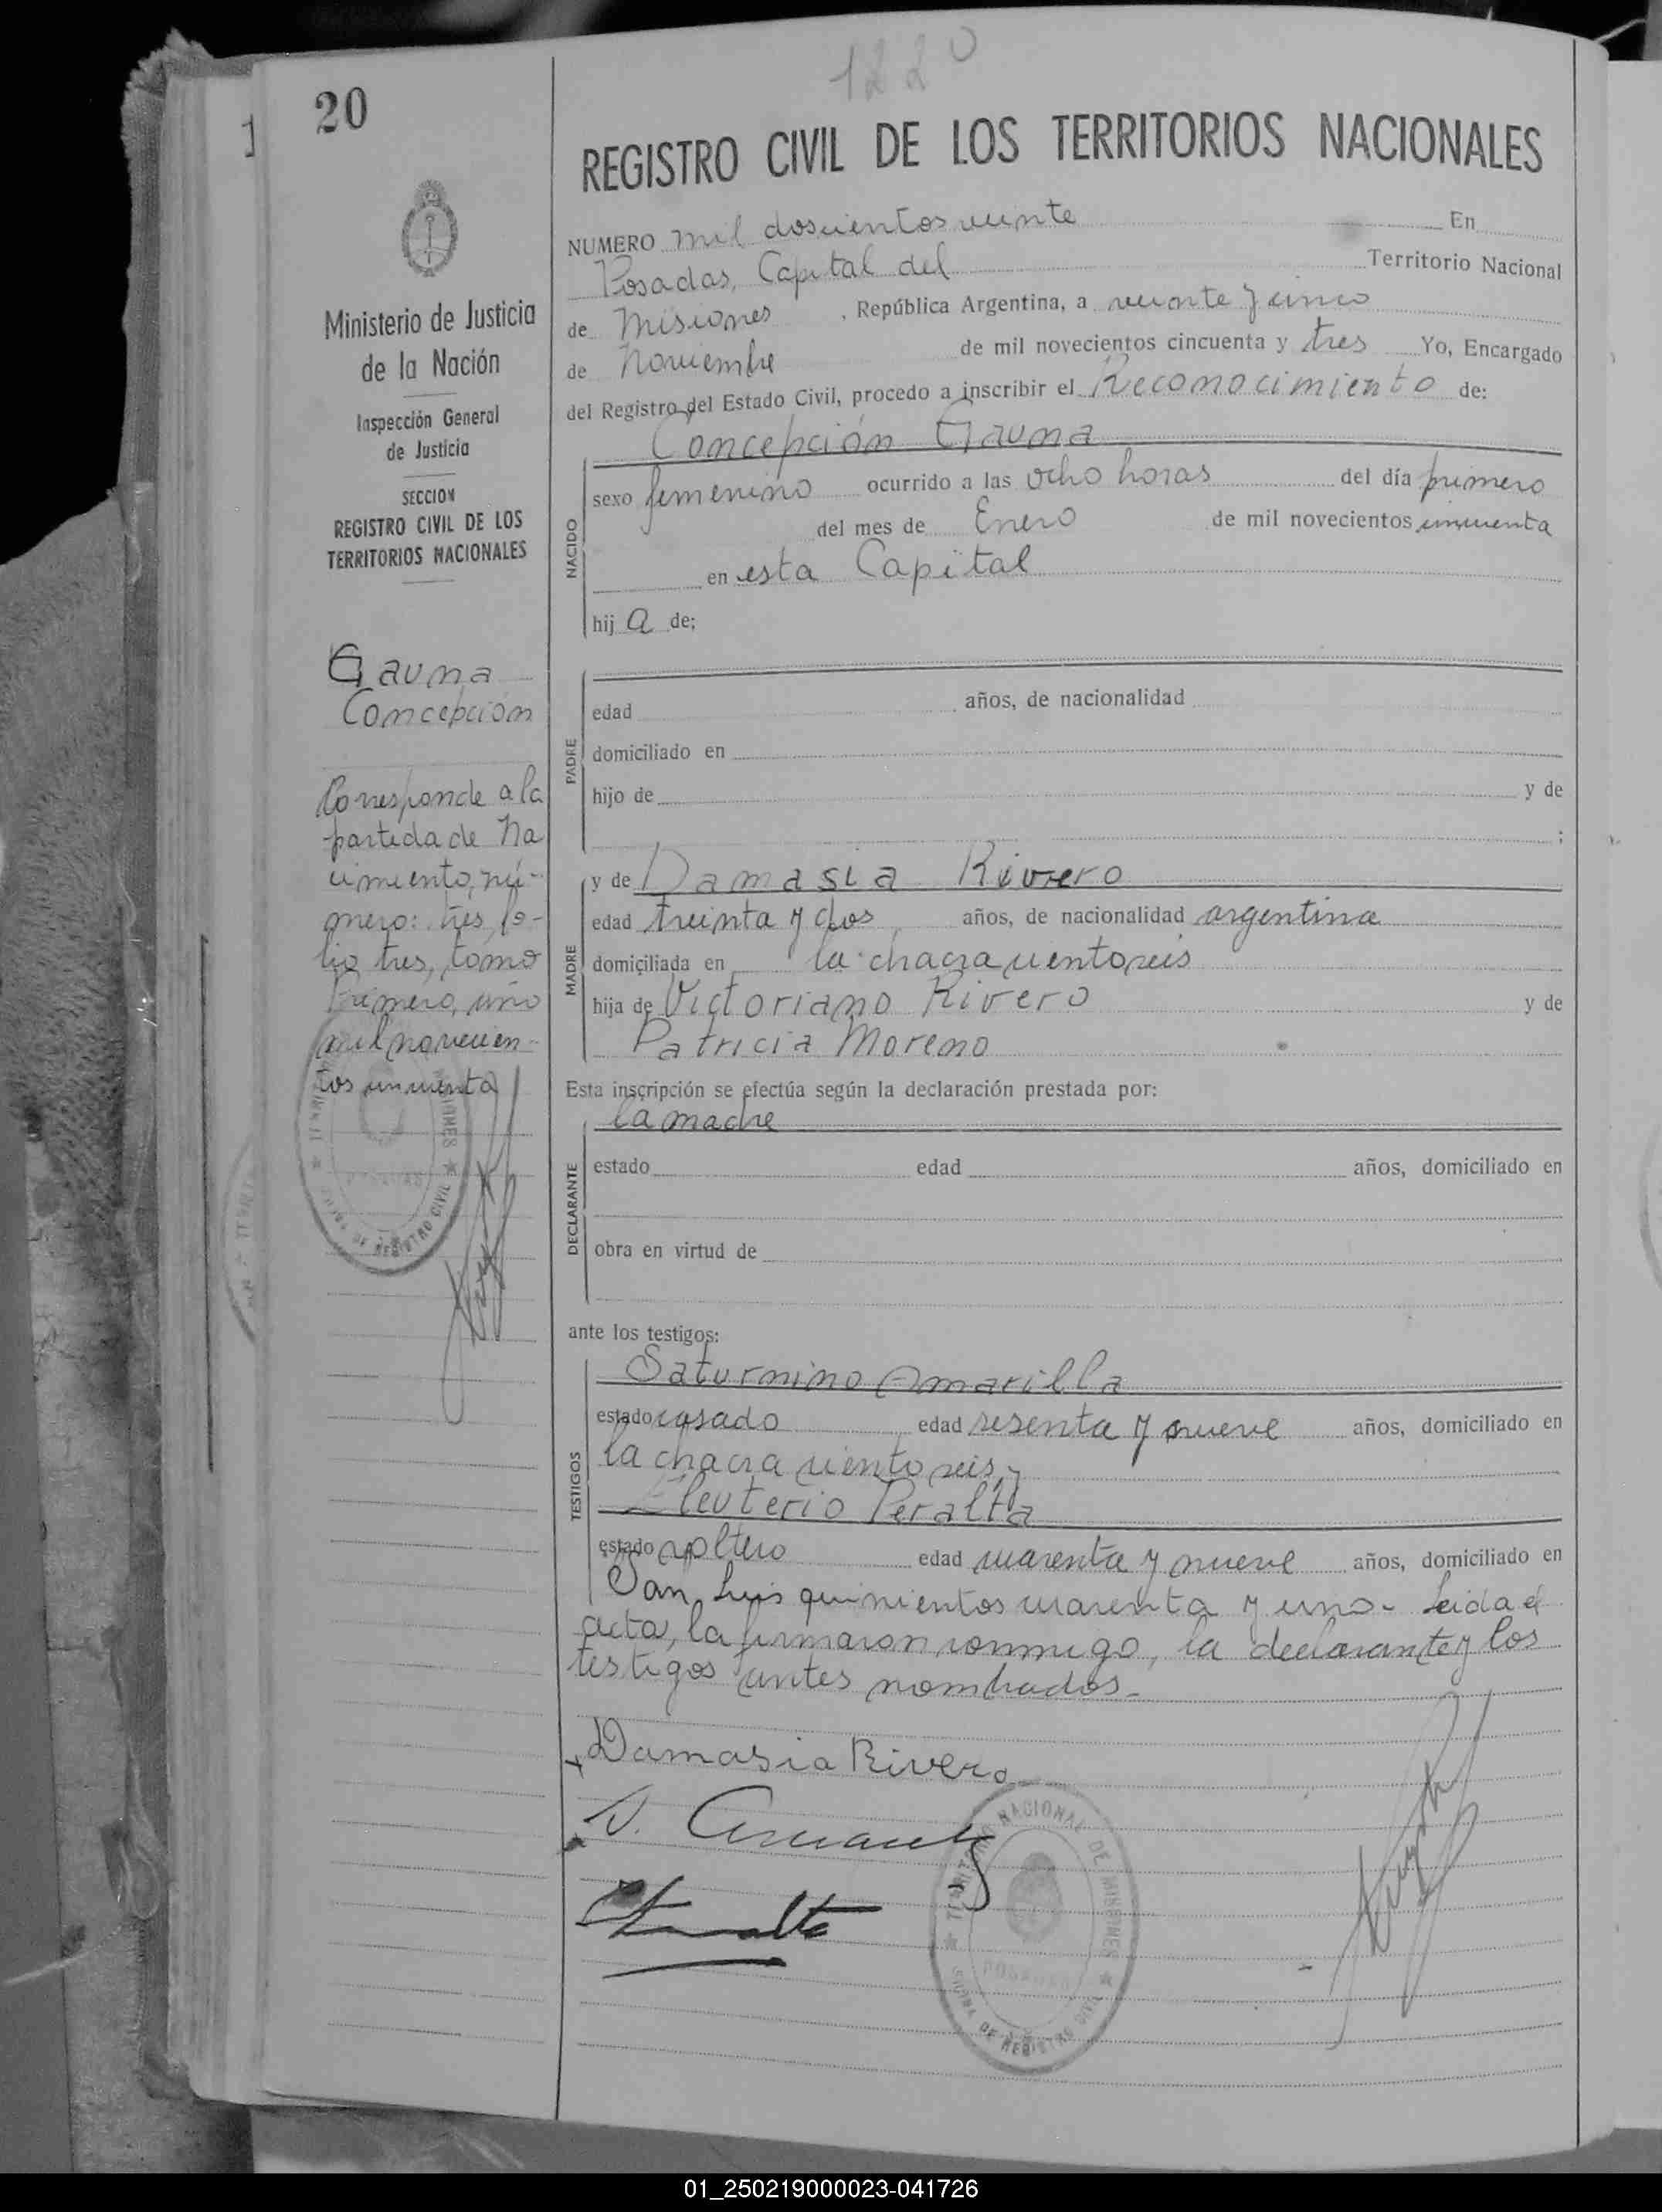 1220
20
REGISTRO CIVIL DE LOS TERRITORIOS NACIONALES
Ministerio de Justicia
de la Nación
Inspección General
de Justicia
SECCION
REGISTRO CIVIL DE LOS
TERRITORIOS NACIONALES
Gauna
Concepción
Corresponde a la
partida de Na
cimiento, nú-
mero: tres, fo-
lio tres, tomo
Primero, año
mil novecien-
tos cincuenta
NUMERO mil doscientos veinte En
Posadas, Capital del Territorio Nacional
de Misiones , República Argentina, a veinte y cinco
de Noviembre de mil novecientos cincuenta y tres Yo, Encargado
del Registro del Estado Civil, procedo a inscribir el Reconocimiento de:
Concepción Gauna
NACIDO
sexo femenino ocurrido a las ocho horas del día primero
del mes de Enero de mil novecientos cincuenta
en esta Capital
hij a de;
PADRE
edad años, de nacionalidad
domiciliado en
hijo de y de
;
MADRE
y de Damasia Rivero
edad treinta y dos años, de nacionalidad argentina
domiciliada en la chacra ciento seis
hija de Victoriano Rivero y de
Patricia Moreno
Esta inscripción se efectúa según la declaración prestada por:
la madre
DECLARANTE
estado edad años, domiciliado en
obra en virtud de
ante los testigos:
TESTIGOS
Saturnino Amarilla
estado casado edad sesenta y nueve años, domiciliado en
la chacra ciento seis, y
Eleuterio Peralta
estado soltero edad cuarenta y nueve años, domiciliado en
San Luis quinientos cuarenta y uno- Leida el
acta, la firmaron conmigo, la declarante y los
testigos antes nombrados.-
Damasia Rivero
TERRITORIO NACIONAL DE MISIONES
POSADAS
DE REGISTRO CIVIL
01_250219000023-041726